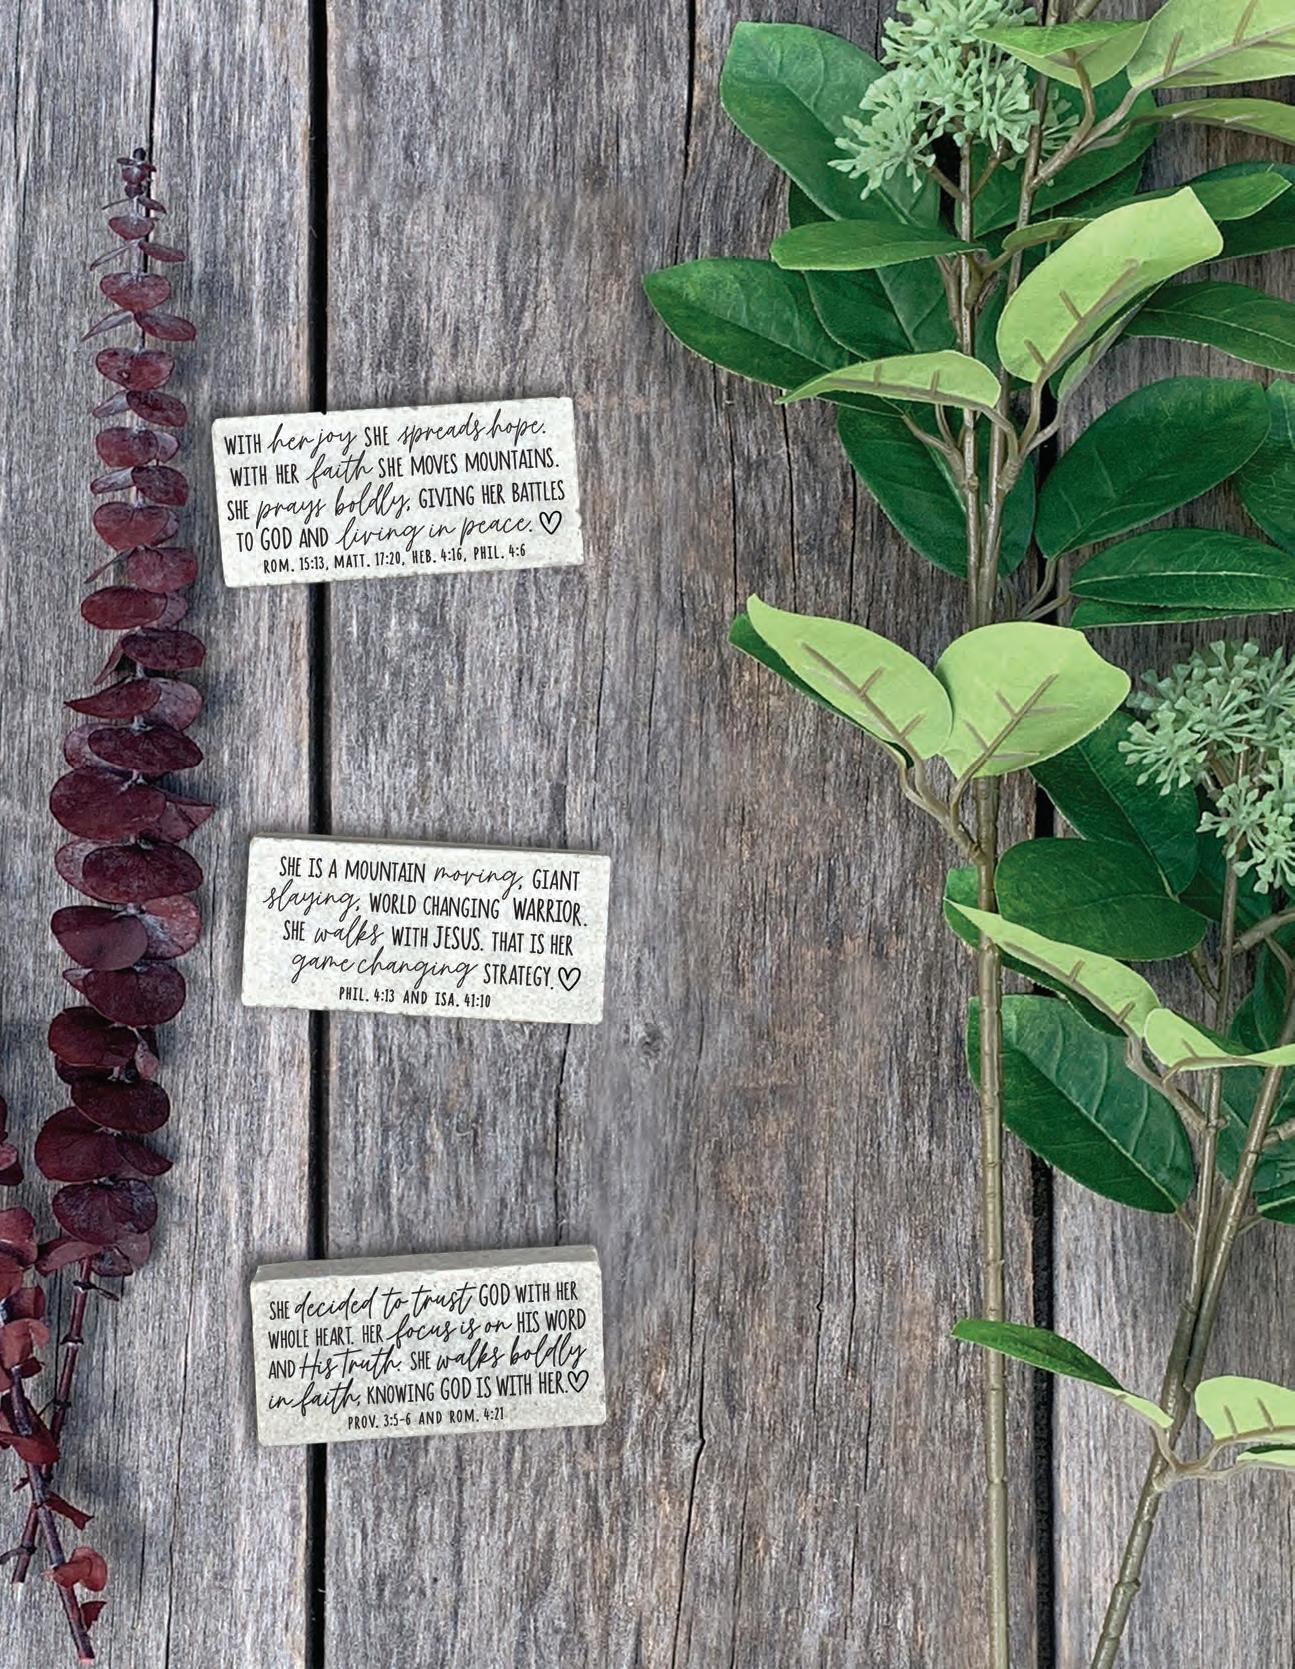 WITH her joy SHE spreads hope.
WITH HER faith SHE MOVES MOUNTAINS.
SHE prays boldly, GIVING HER BATTLES
TO GOD AND living in peace. ♡
ROM. 15:13, MATT. 17:20, HEB. 4:16, PHIL. 4:6
SHE IS A MOUNTAIN moving, GIANT
slaying, WORLD CHANGING WARRIOR.
SHE walks WITH JESUS. THAT IS HER
game changing STRATEGY. ♡
PHIL. 4:13 AND ISA. 41:10
SHE decided to trust GOD WITH HER
WHOLE HEART. HER focus is on HIS WORD
AND His Truth. SHE walks boldly
in faith, KNOWING GOD IS WITH HER. ♡
PROV. 3:5-6 AND ROM. 4:21